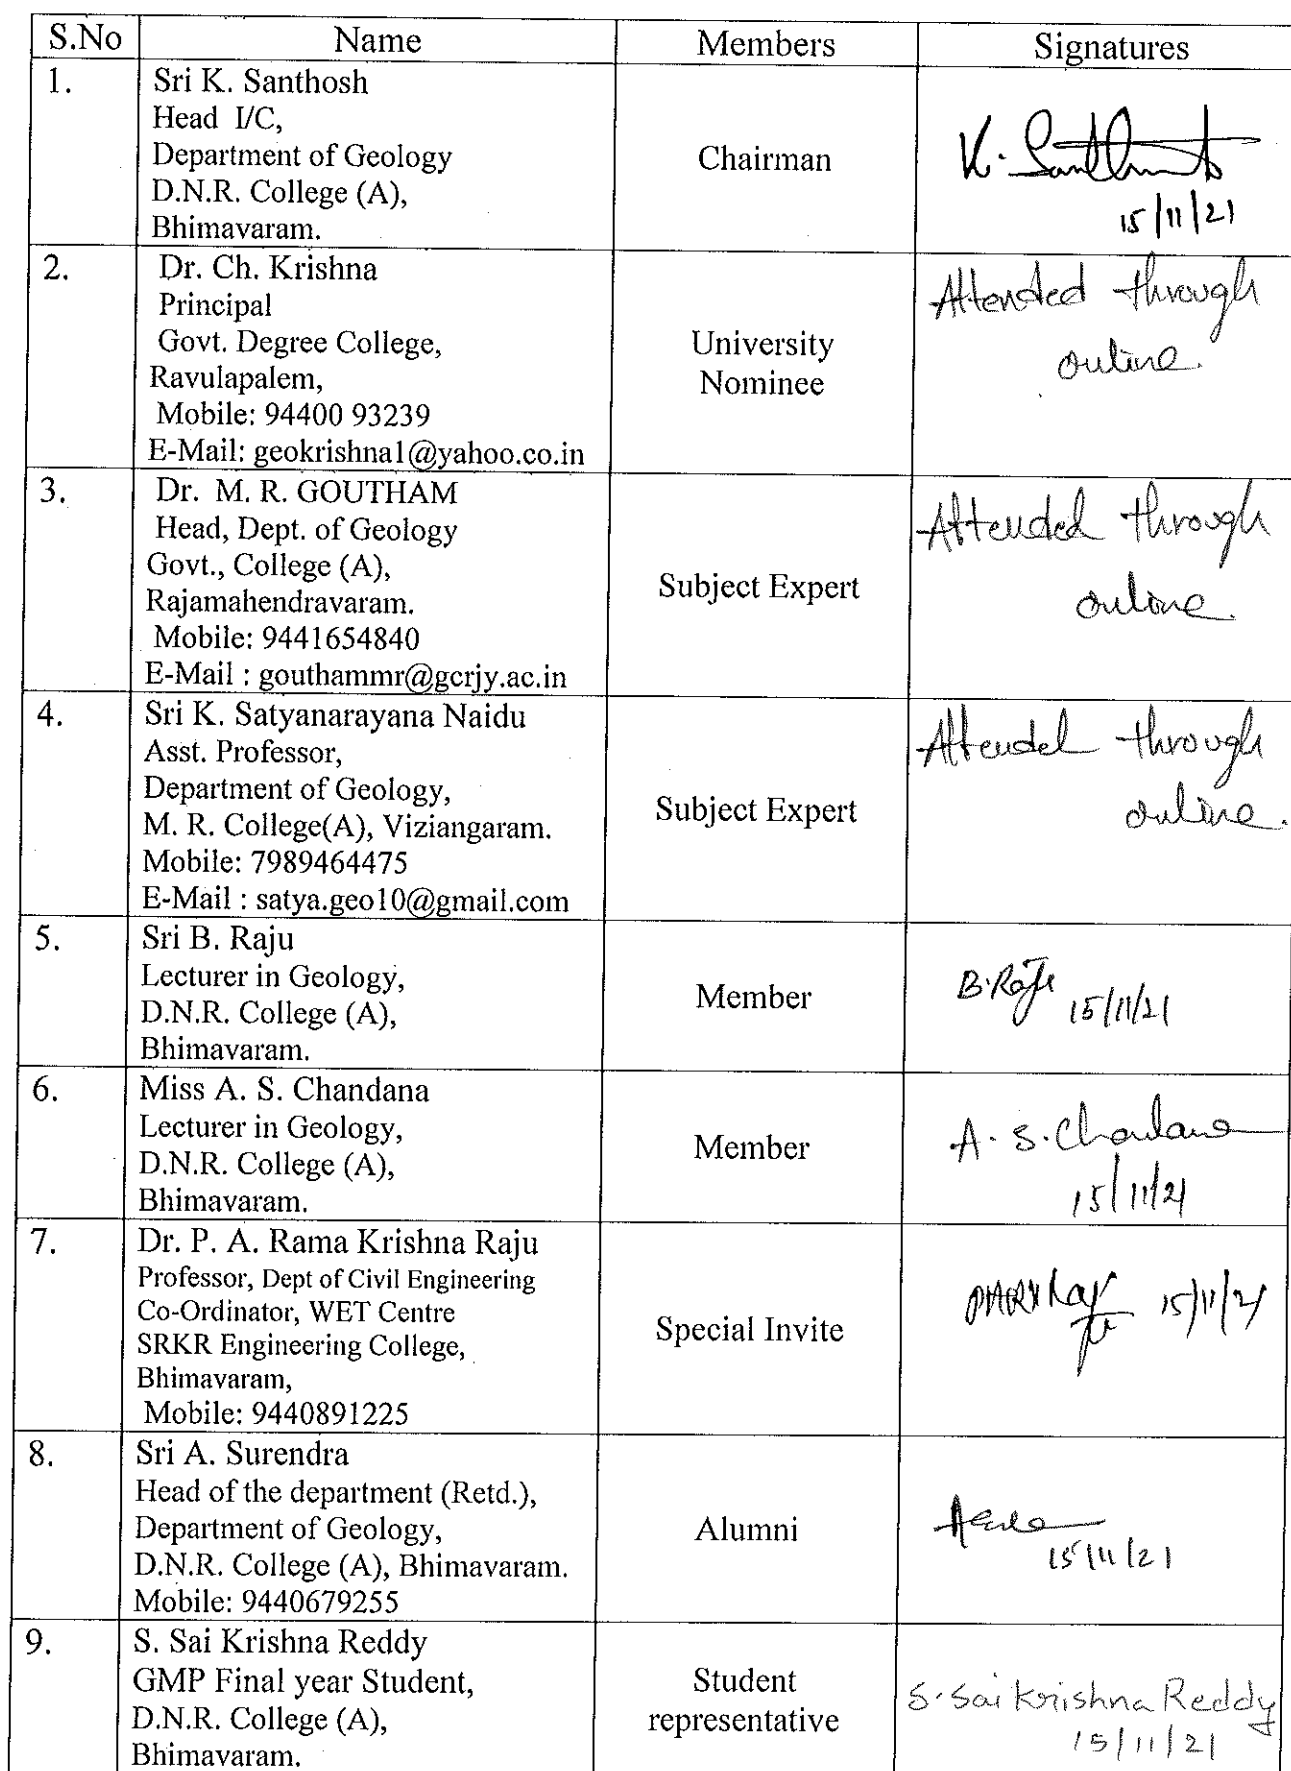 S.No Name Members Signatures
1. Sri K. Santhosh
Head I/C,
Department of Geology
D.N.R. College (A),
Bhimavaram.
Chairman
K. Santhosh
15/11/21
2. Dr. Ch. Krishna
Principal
Govt. Degree College,
Ravulapalem,
Mobile: 94400 93239
E-Mail: geokrishna1@yahoo.co.in
University
Nominee
Attended through
online.
3. Dr. M. R. GOUTHAM
Head, Dept. of Geology
Govt., College (A),
Rajamahendravaram.
Mobile: 9441654840
E-Mail : gouthammr@gcrjy.ac.in
Subject Expert
Attended through
online.
4. Sri K. Satyanarayana Naidu
Asst. Professor,
Department of Geology,
M. R. College(A), Viziangaram.
Mobile: 7989464475
E-Mail : satya.geo10@gmail.com
Subject Expert
Attended through
online.
5. Sri B. Raju
Lecturer in Geology,
D.N.R. College (A),
Bhimavaram.
Member
B. Raju 15/11/21
6. Miss A. S. Chandana
Lecturer in Geology,
D.N.R. College (A),
Bhimavaram.
Member
A. S. Chandana
15/11/21
7. Dr. P. A. Rama Krishna Raju
Professor, Dept of Civil Engineering
Co-Ordinator, WET Centre
SRKR Engineering College,
Bhimavaram,
Mobile: 9440891225
Special Invite
15/11/21
8. Sri A. Surendra
Head of the department (Retd.),
Department of Geology,
D.N.R. College (A), Bhimavaram.
Mobile: 9440679255
Alumni
15/11/21
9. S. Sai Krishna Reddy
GMP Final year Student,
D.N.R. College (A),
Bhimavaram.
Student
representative
S. Sai Krishna Reddy
15/11/21